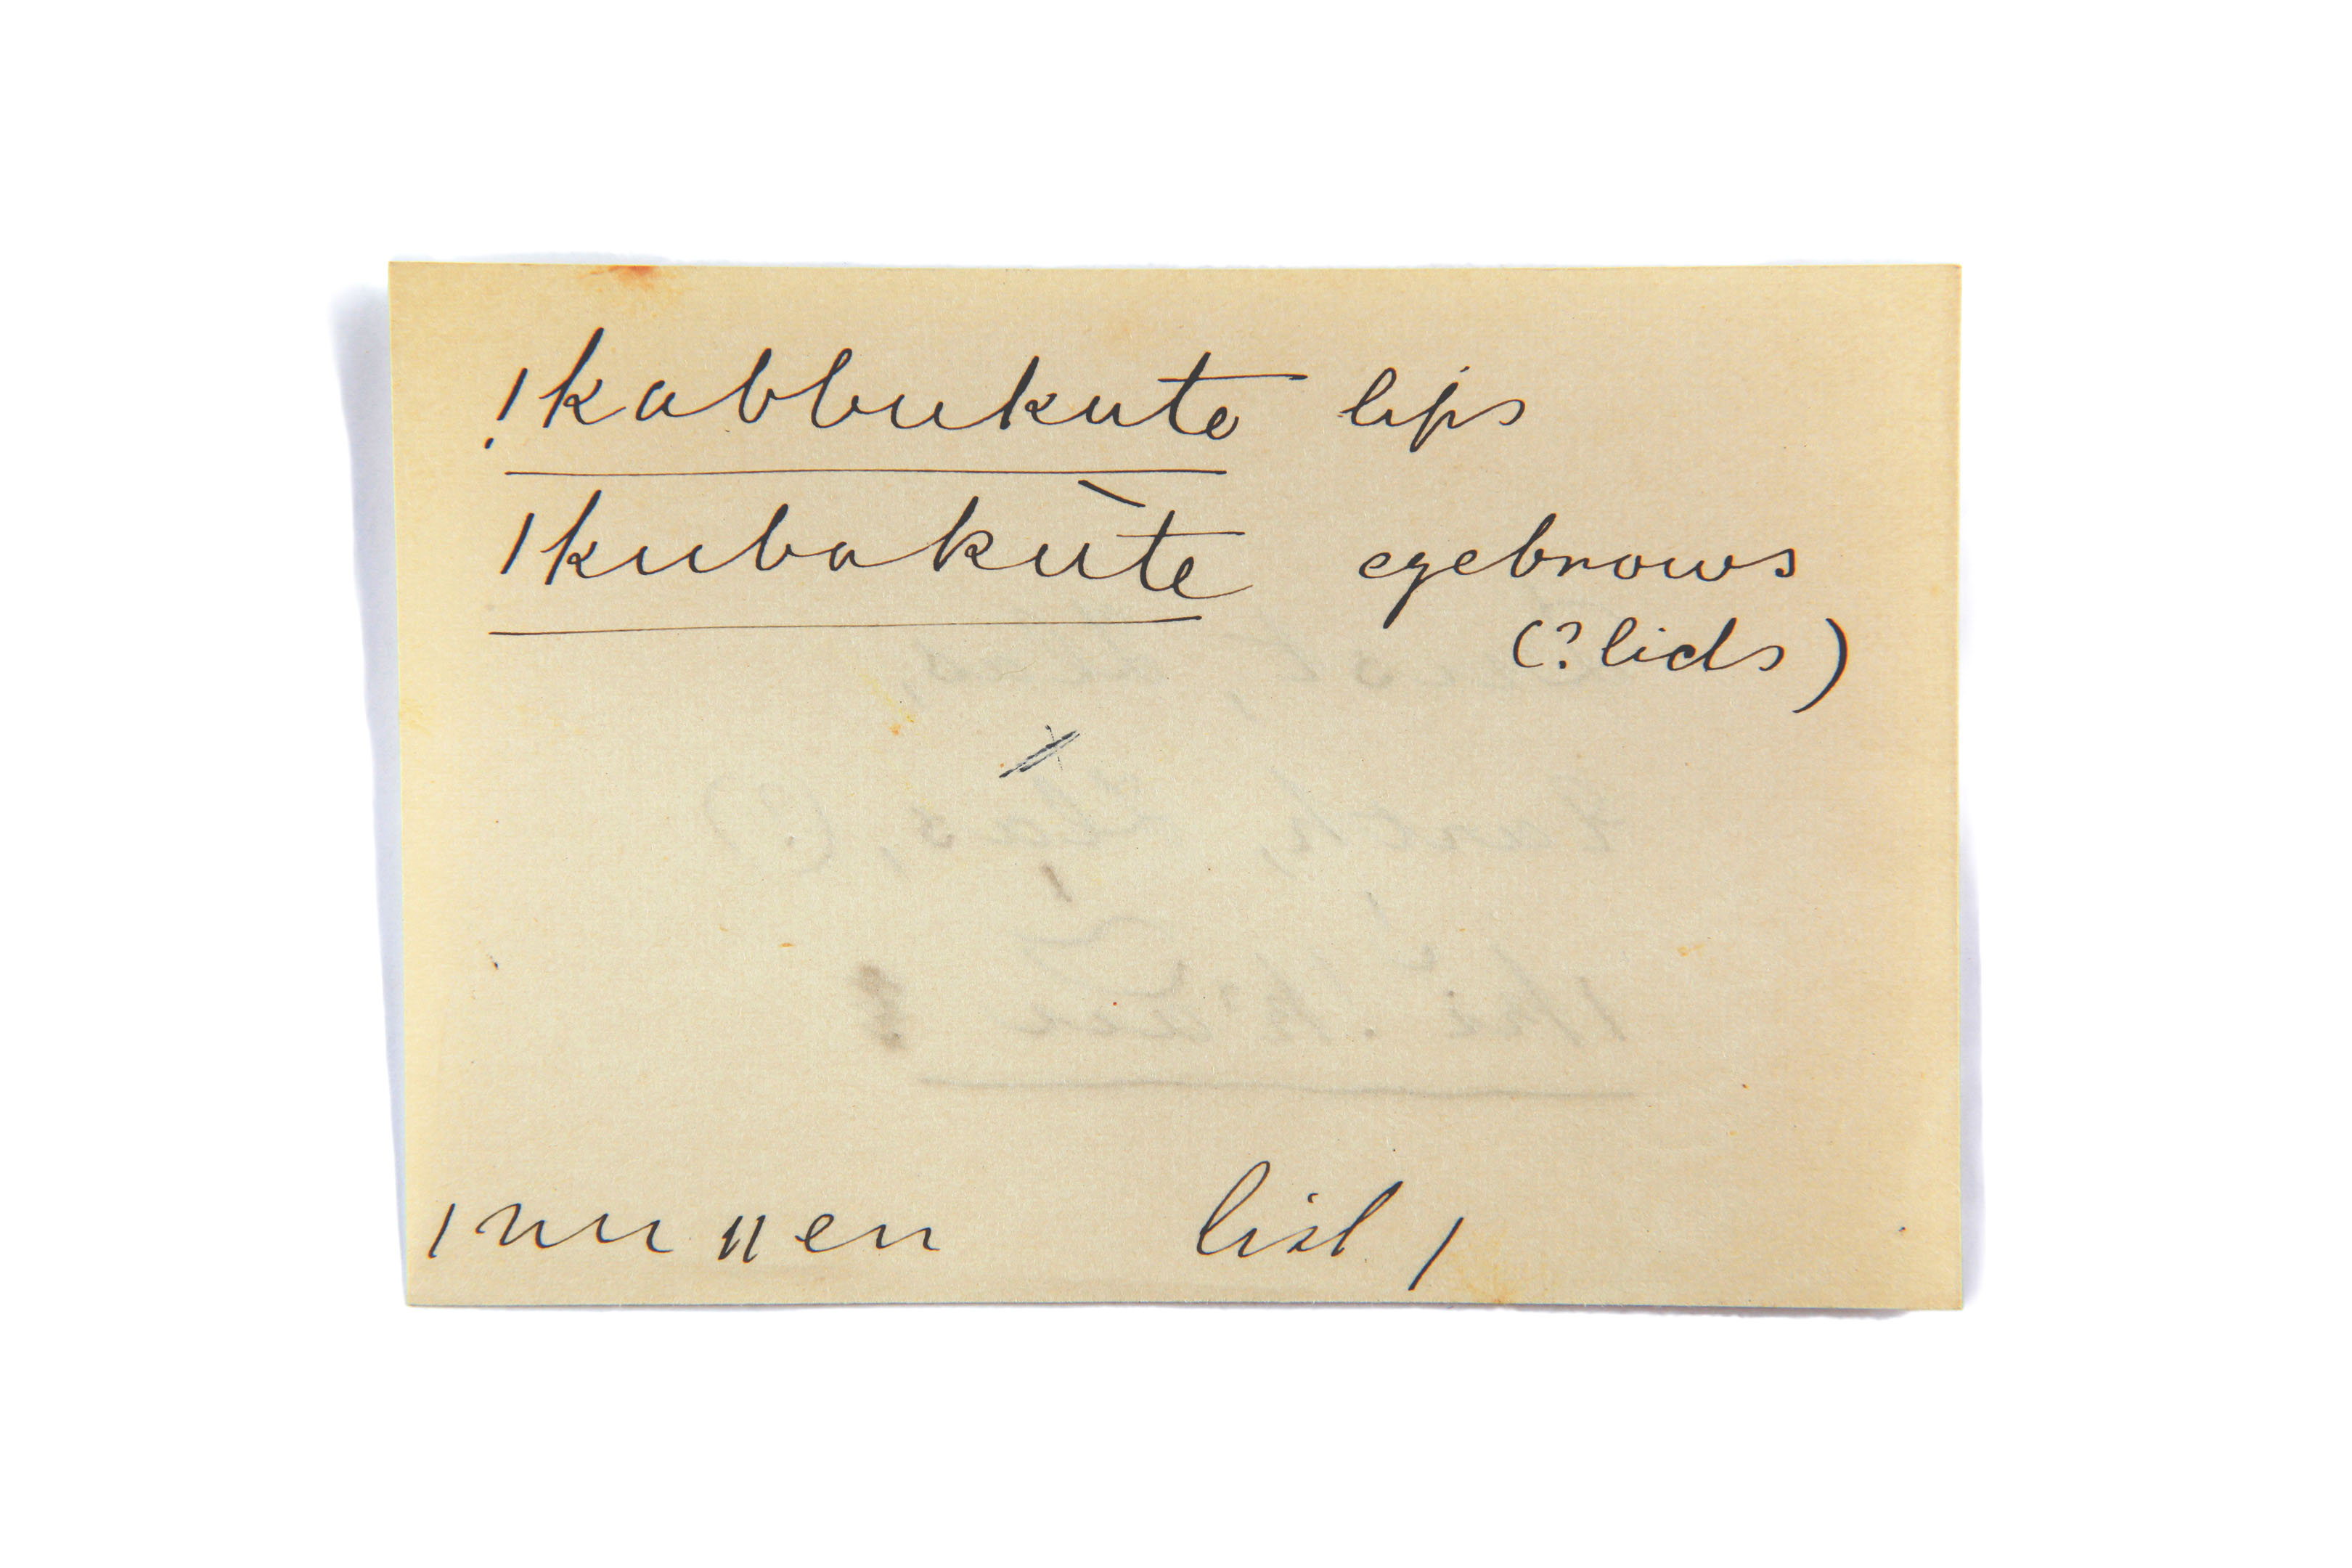 !kabbukute lips
|kubakùte eyebrows
(? lids)
|nu ||en list 1